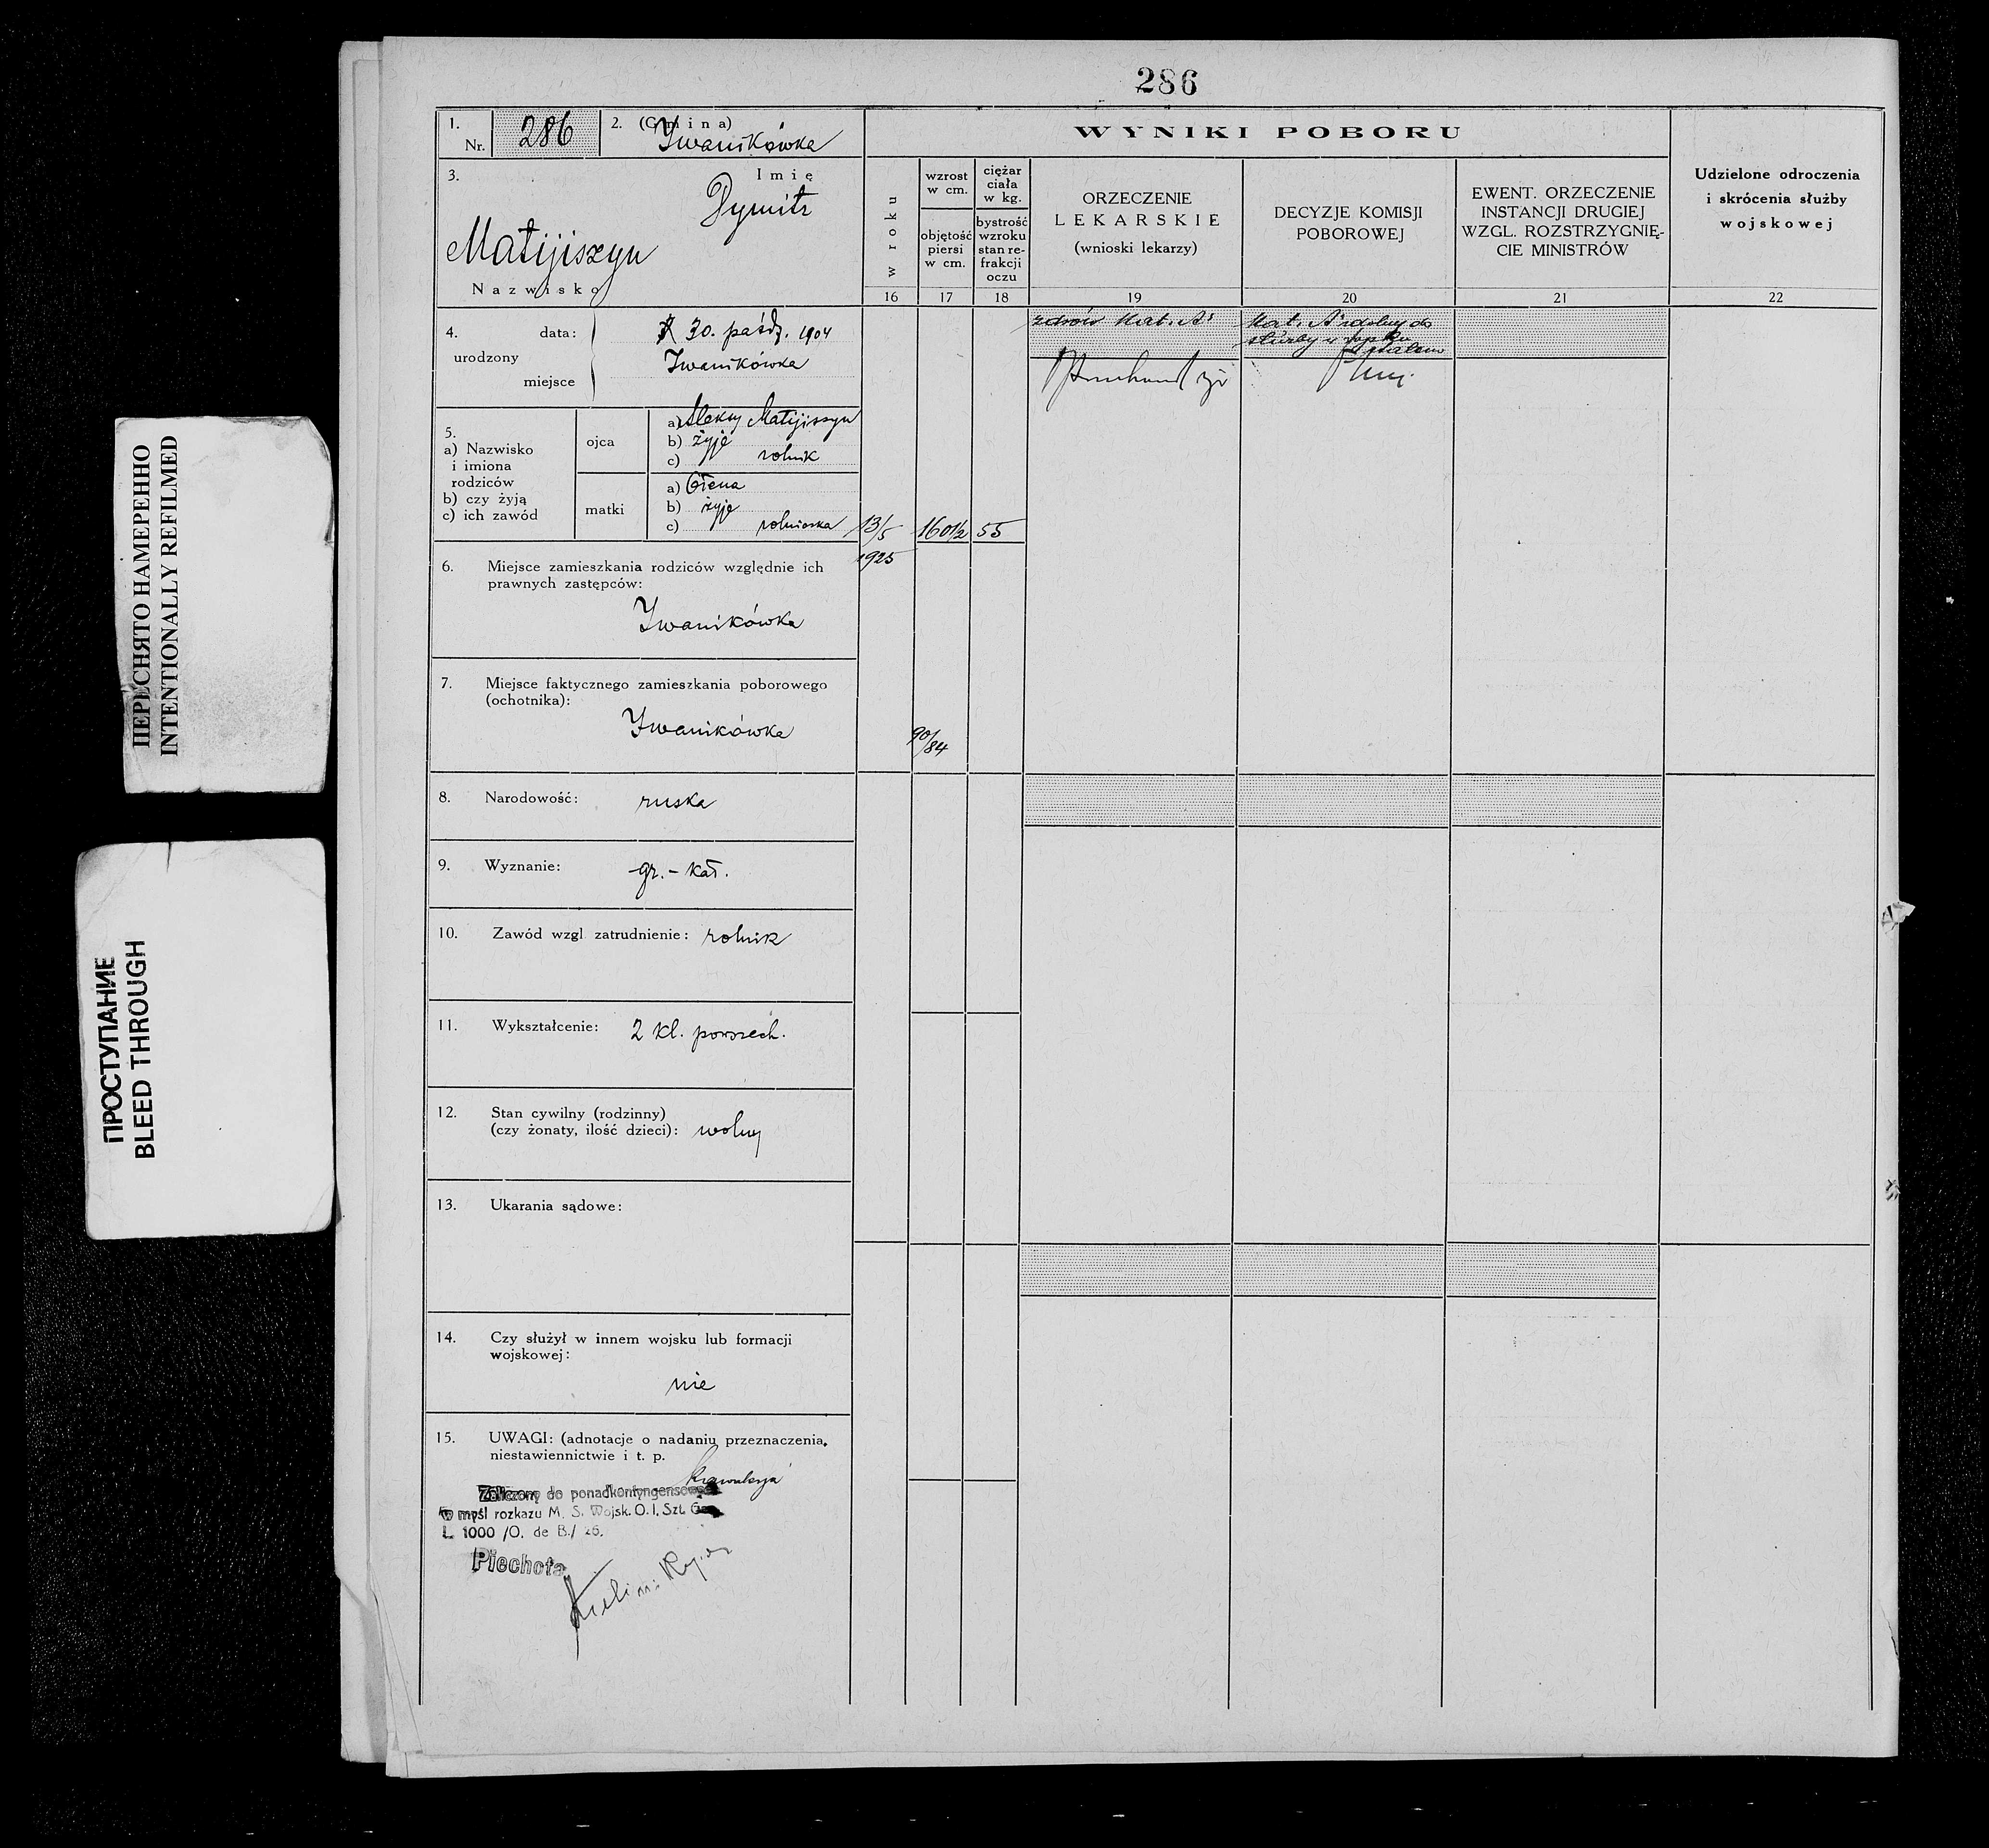 286
1.
Nr. 286
2. (Gmina)
Iwanikówka
3.
Imię
Dymitr
Matijiszyn
Nazwisko
4. urodzony
data: 30. paźdz. 1904
miejsce
Iwanikówka
5.
a) Nazwisko
i imiona
rodziców
b) czy żyją
c) ich zawód
ojca
a) Aleksy Matijiszyn
b) żyje
c) rolnik
matki
a) Ołena
b) żyje
c) rolniczka
6. Miejsce zamieszkania rodziców względnie ich
prawnych zastępców:
Iwanikówka
7. Miejsce faktycznego zamieszkania poborowego
(ochotnika):
Iwanikówka
8. Narodowość: ruska
9. Wyznanie: gr.-kat.
10. Zawód wzgl. zatrudnienie: rolnik
11. Wykształcenie: 2 kl. powszech.
12. Stan cywilny (rodzinny)
(czy żonaty, ilość dzieci): wolny
13. Ukarania sądowe:
14. Czy służył w innem wojsku lub formacji
wojskowej:
nie
15. UWAGI: (adnotacje o nadaniu przeznaczenia,
niestawiennictwie i t. p.
Zaliczony do ponadkontyngensowych
w myśl rozkazu M. S. Wojsk. O. I. Szt. Gen.
L. 1000 /O. de B./ 26.
Piechota
WYNIKI POBORU
w roku
wzrost
w cm.
objętość
piersi
w cm.
ciężar
ciała
w kg.
bystrość
wzroku
stan re-
frakcji
oczu
ORZECZENIE
LEKARSKIE
(wnioski lekarzy)
DECYZJE KOMISJI
POBOROWEJ
EWENT. ORZECZENIE
INSTANCJI DRUGIEJ
WZGL. ROZSTRZYGNIĘ-
CIE MINISTRÓW
Udzielone odroczenia
i skrócenia służby
wojskowej
16 17 18 19 20 21 22
zdrów Kat. A
Kat. A zdolny do
służby w
13/5
1925
160½ 55
90/84
ПЕРЕСНЯТО НАМЕРЕННО
INTENTIONALLY REFILMED
ПРОСТУПАНИЕ
BLEED THROUGH